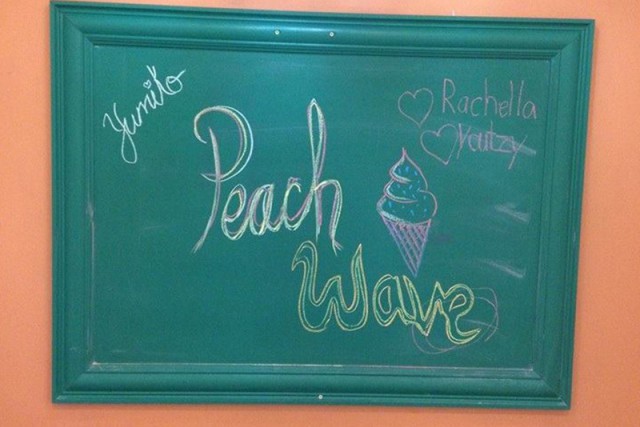 Yumiko
Rachella
Peach
Wave